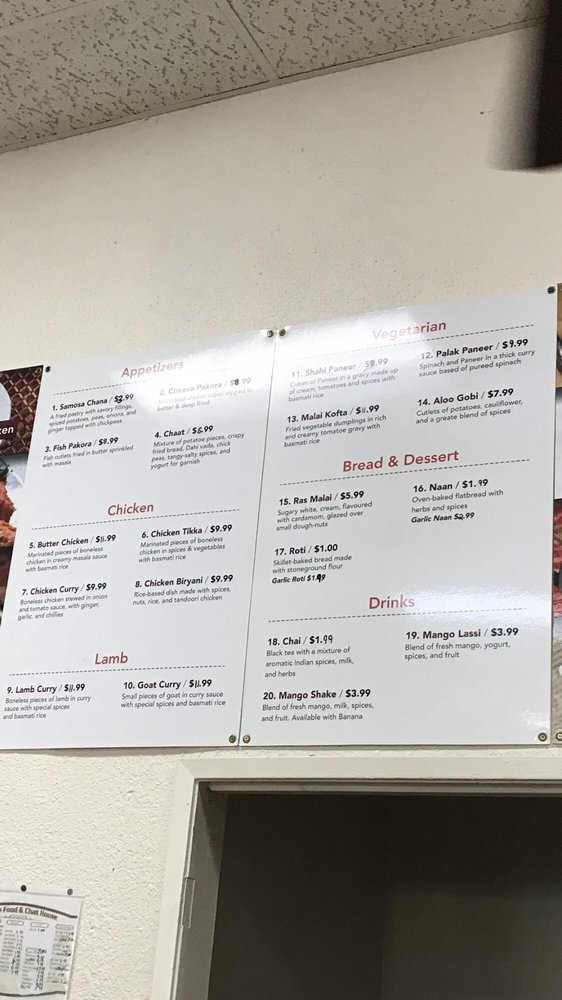 Appetizers
1. Samosa Chana / $2.99
A fried pastry with savory filings,
spiced potatoes, peas, onions, and
ginger topped with chickpeas
2. Cheese Pakora / $8.99
Marinated cheese cubes dipped in
batter & deep fried
3. Fish Pakora / $8.99
Fish cutlets fried in butter sprinkled
with masala
4. Chaat / $6.99
Mixture of potatoe pieces, crispy
fried bread, Dahi vada, chick
peas, tangy-salty spices, and
yogurt for garnish
Chicken
5. Butter Chicken / $11.99
Marinated pieces of boneless
chicken in creamy masala sauce
with basmati rice
6. Chicken Tikka / $9.99
Marinated pieces of boneless
chicken in spices & vegetables
with basmati rice
7. Chicken Curry / $9.99
Boneless chicken stewed in onion
and tomato sauce, with ginger,
garlic, and chillies
8. Chicken Biryani / $9.99
Rice-based dish made with spices,
nuts, rice, and tandoori chicken
Lamb
9. Lamb Curry / $11.99
Boneless pieces of lamb in curry
sauce with special spices
and basmati rice
10. Goat Curry / $11.99
Small pieces of goat in curry sauce
with special spices and basmati rice
Vegetarian
11. Shahi Paneer / $9.99
Cubes of Paneer in a gravy made up
of cream, tomatoes and spices with
basmati rice
12. Palak Paneer / $9.99
Spinach and Paneer in a thick curry
sauce based of pureed spinach
13. Malai Kofta / $11.99
Fried vegetable dumplings in rich
and creamy tomatoe gravy with
basmati rice
14. Aloo Gobi / $7.99
Cutlets of potatoes, cauliflower,
and a greate blend of spices
Bread & Dessert
15. Ras Malai / $5.99
Sugary white, cream, flavoured
with cardamom, glazed over
small dough-nuts
16. Naan / $1.99
Oven-baked flatbread with
herbs and spices
Garlic Naan $2.99
17. Roti / $1.00
Skillet-baked bread made
with stoneground flour
Garlic Roti $1.99
Drinks
18. Chai / $1.99
Black tea with a mixture of
aromatic Indian spices, milk,
and herbs
19. Mango Lassi / $3.99
Blend of fresh mango, yogurt,
spices, and fruit
20. Mango Shake / $3.99
Blend of fresh mango, milk, spices,
and fruit. Available with Banana
Food & Chat House